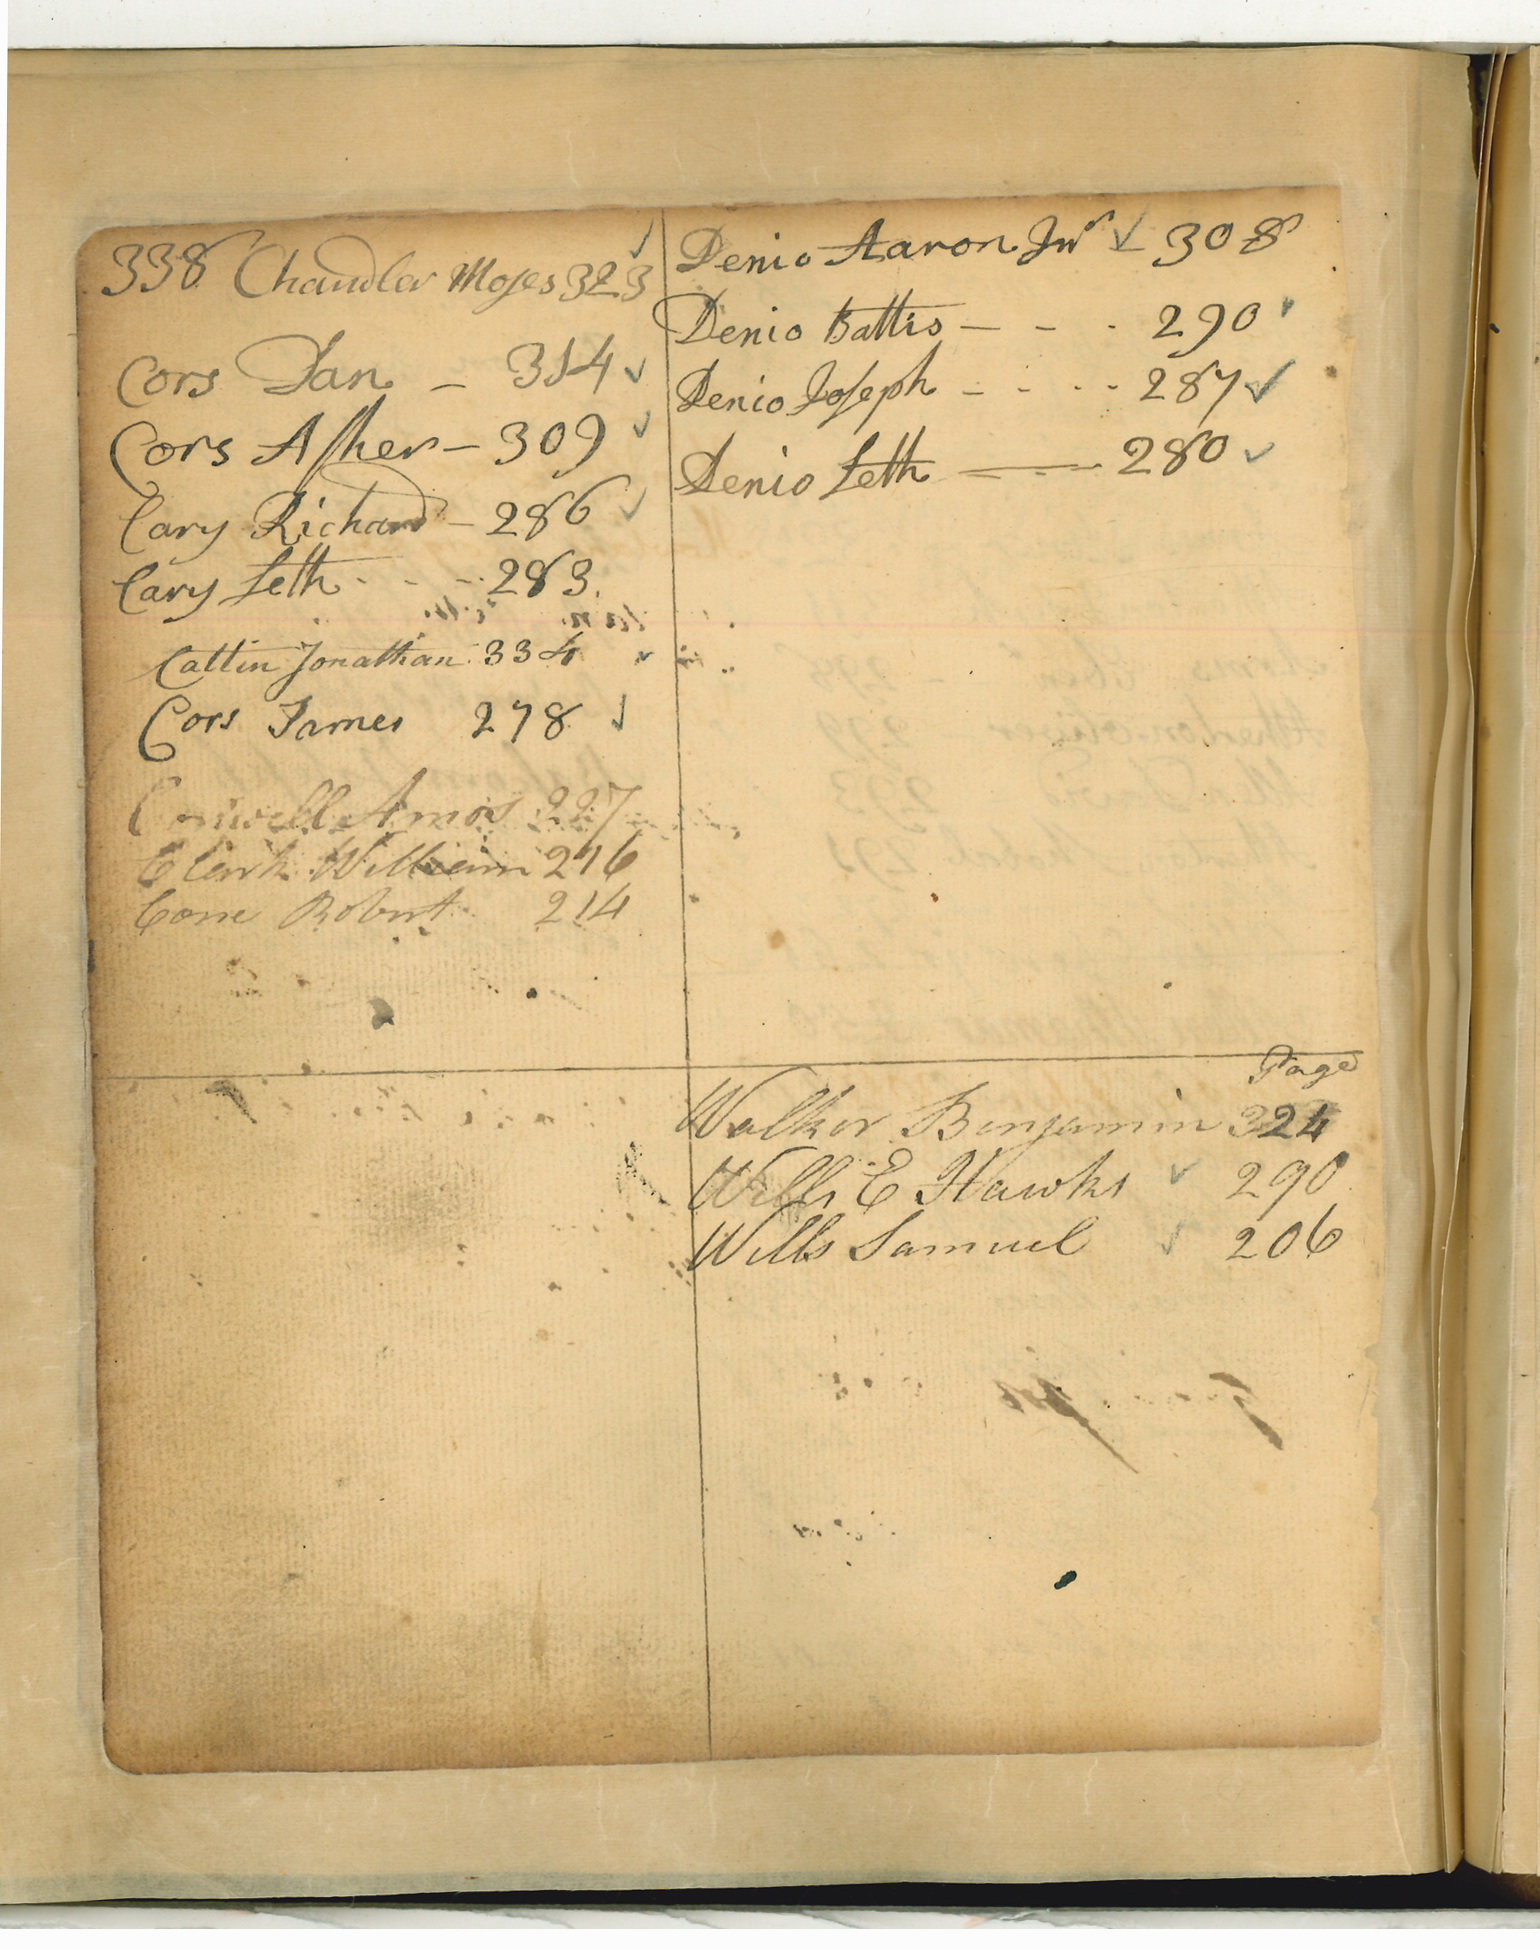 338 Chandler Moses 323 ✓
Cors Dan – 314 ✓
Cors Asher – 309 ✓
Cary Richard – 286 ✓
Cary Seth - - - 283.
Cattin Jonathan 334 ✓
Cors James 278 ✓
Amos 227
Clark William 216
Cone Robert 214
Denio Aaron Jnr ✓ 308
Denio Battis – – - 290 ✓
Denio Joseph - - - - 287 ✓
Denio Seth — - — 280 ✓
Page
Walker Benjamin 324
Wells E Hawks ✓ 290
Wells Samuel ✓ 206